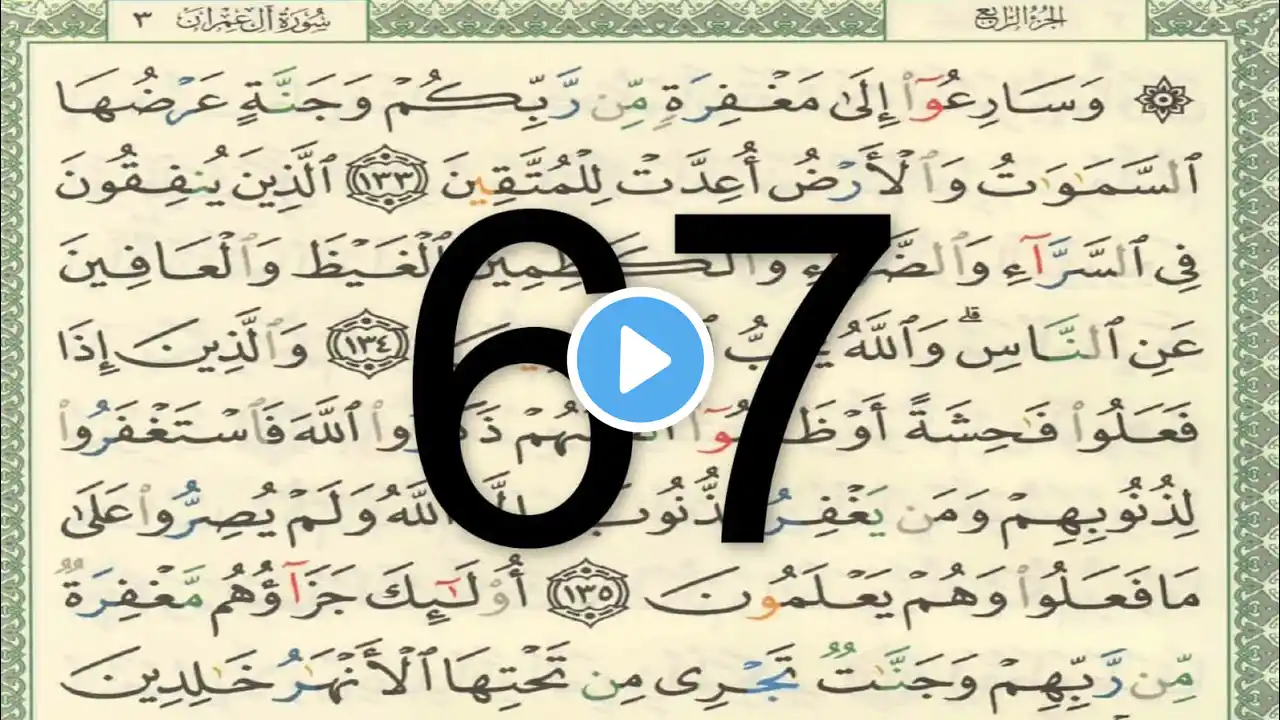 الجزء الرابع
سورة آل عمران ٣
۞ وَسَارِعُوٓا۟ إِلَىٰ مَغْفِرَةٍ مِّن رَّبِّكُمْ وَجَنَّةٍ عَرْضُهَا
ٱلسَّمَـٰوَٰتُ وَٱلْأَرْضُ أُعِدَّتْ لِلْمُتَّقِينَ ١٣٣ ٱلَّذِينَ يُنفِقُونَ
فِى ٱلسَّرَّآءِ وَٱلضَّرَّآءِ وَٱلْكَـٰظِمِينَ ٱلْغَيْظَ وَٱلْعَافِينَ
عَنِ ٱلنَّاسِ ۗ وَٱللَّهُ يُحِبُّ ١٣٤ وَٱلَّذِينَ إِذَا
فَعَلُوا۟ فَـٰحِشَةً أَوْ ظَلَمُوٓا۟ أَنفُسَهُمْ ذَكَرُوا۟ ٱللَّهَ فَٱسْتَغْفَرُوا۟
لِذُنُوبِهِمْ وَمَن يَغْفِرُ ٱلذُّنُوبَ إِلَّا ٱللَّهُ وَلَمْ يُصِرُّوا۟ عَلَىٰ
مَا فَعَلُوا۟ وَهُمْ يَعْلَمُونَ ١٣٥ أُو۟لَـٰٓئِكَ جَزَآؤُهُم مَّغْفِرَةٌ
مِّن رَّبِّهِمْ وَجَنَّـٰتٌ تَجْرِى مِن تَحْتِهَا ٱلْأَنْهَـٰرُ خَـٰلِدِينَ
67